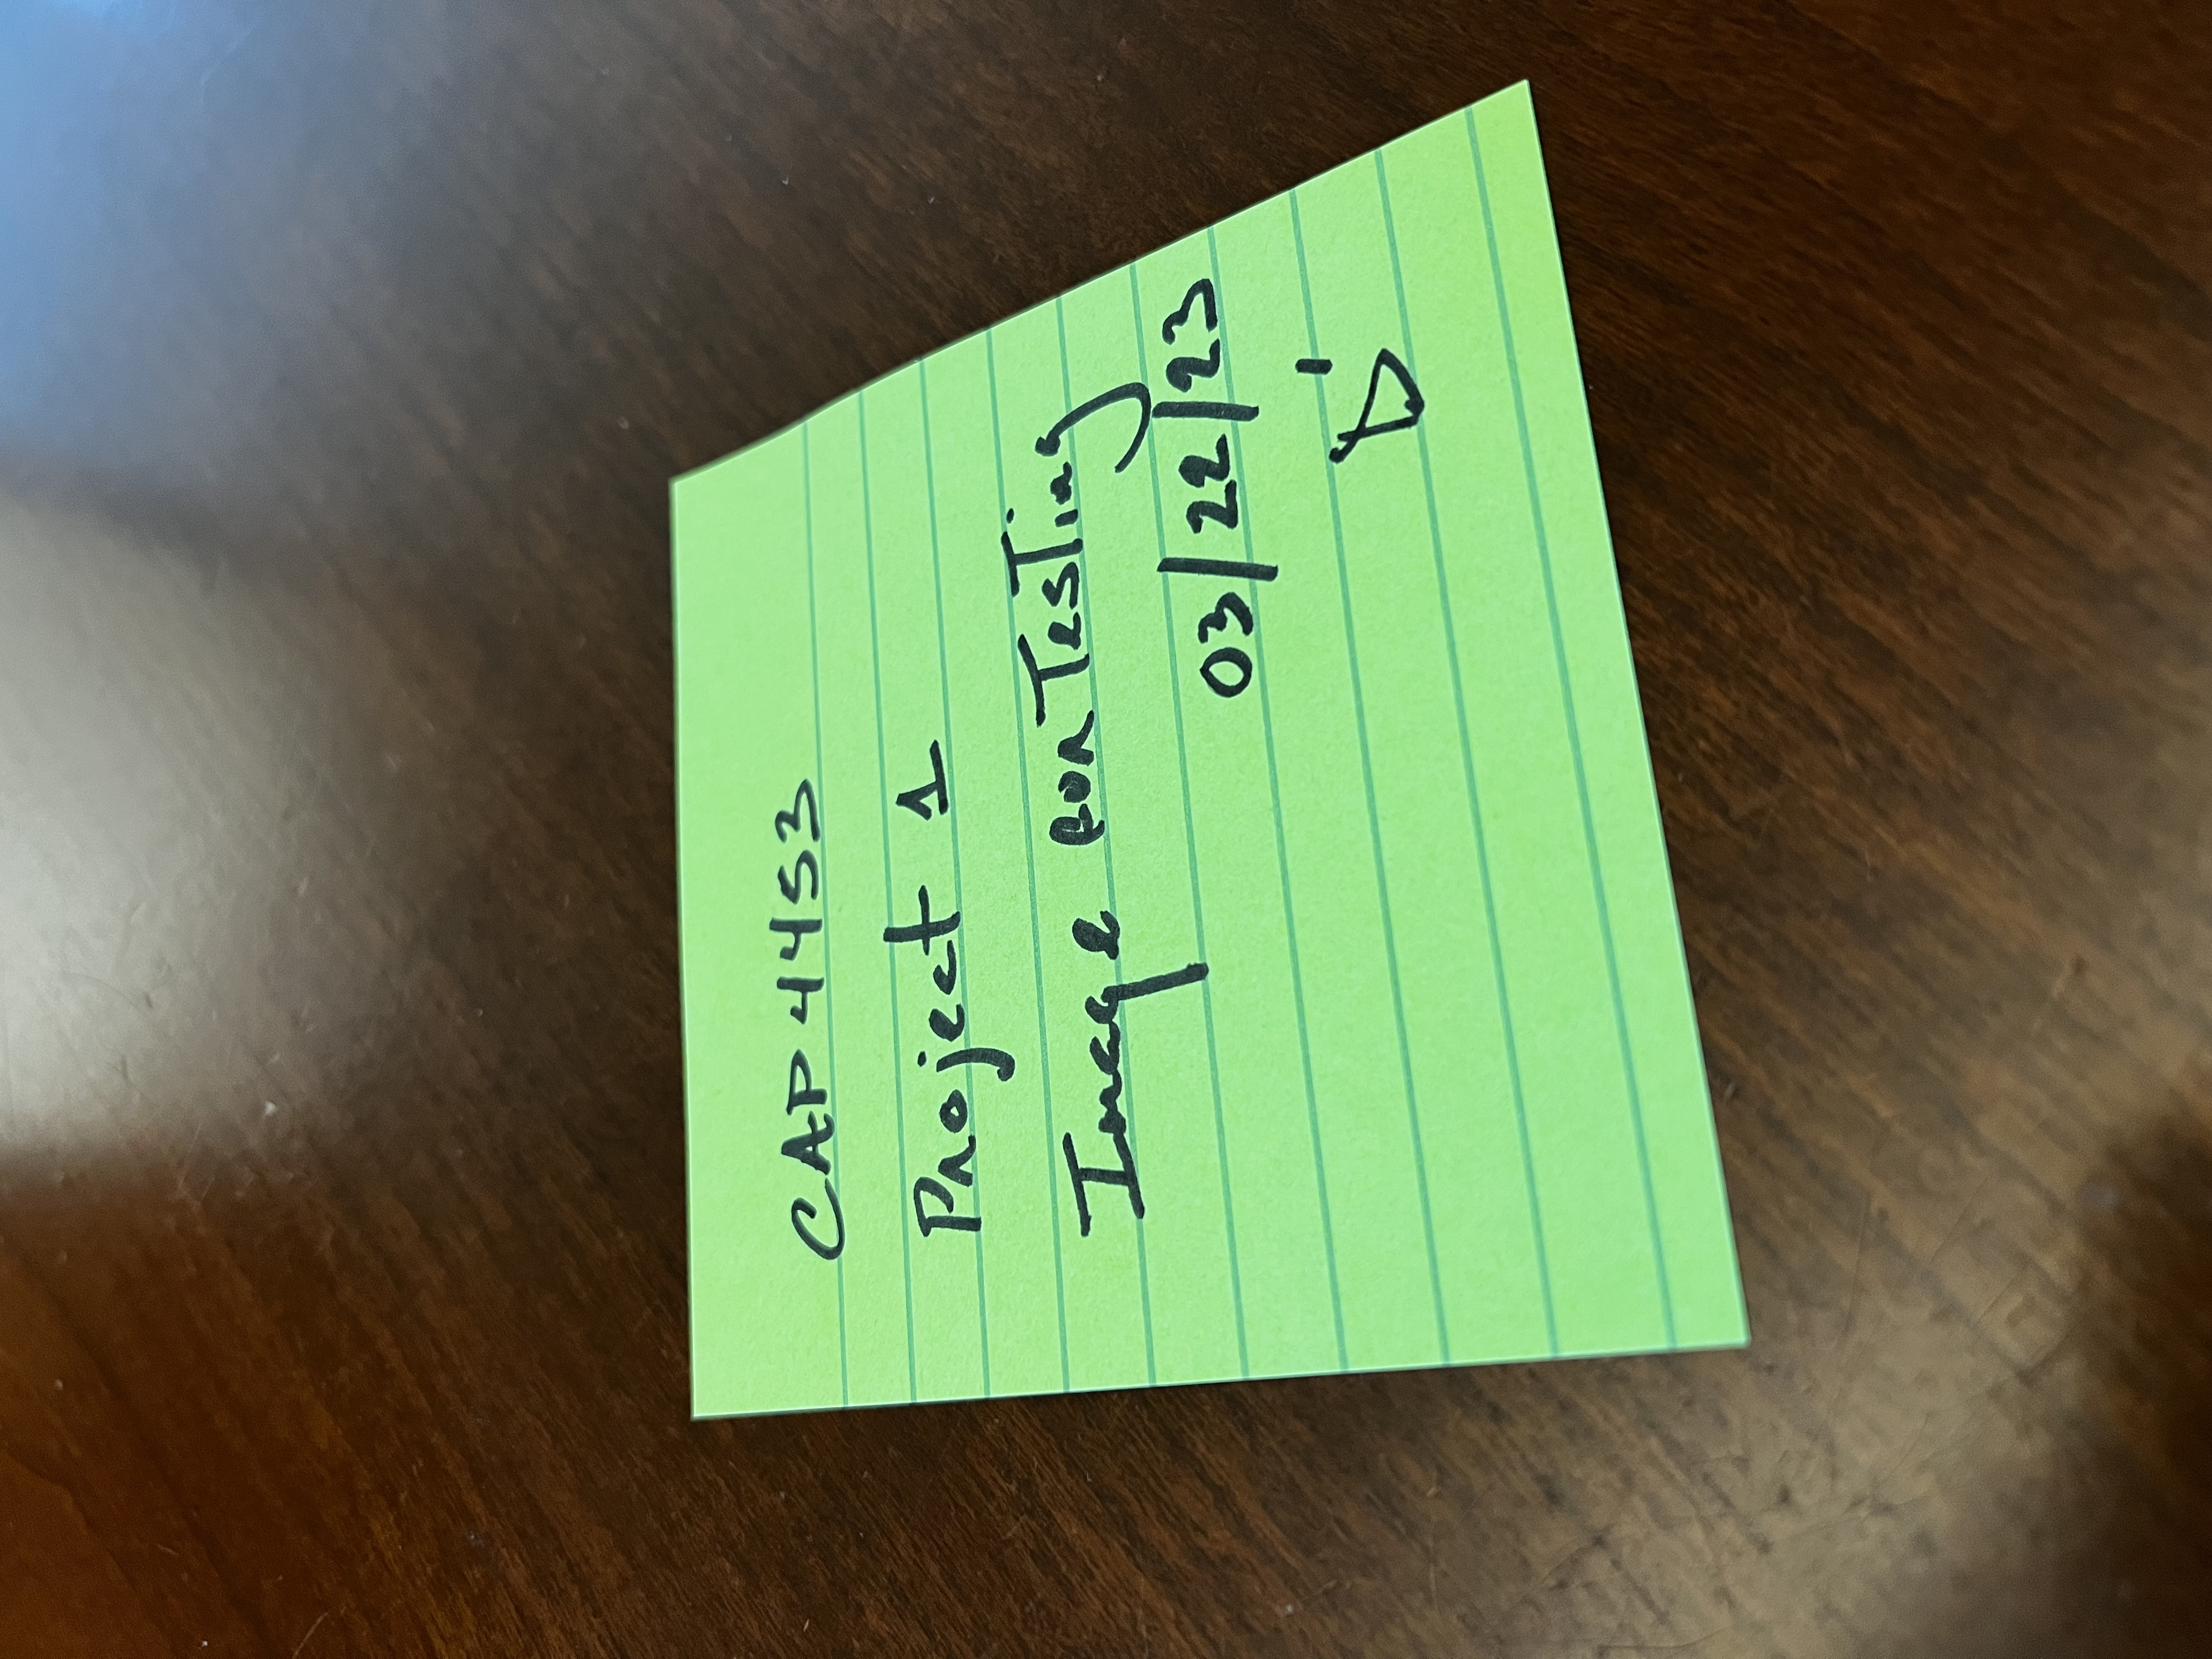 CAP4453
Project 1
Image for Testing
03/22/23
D'